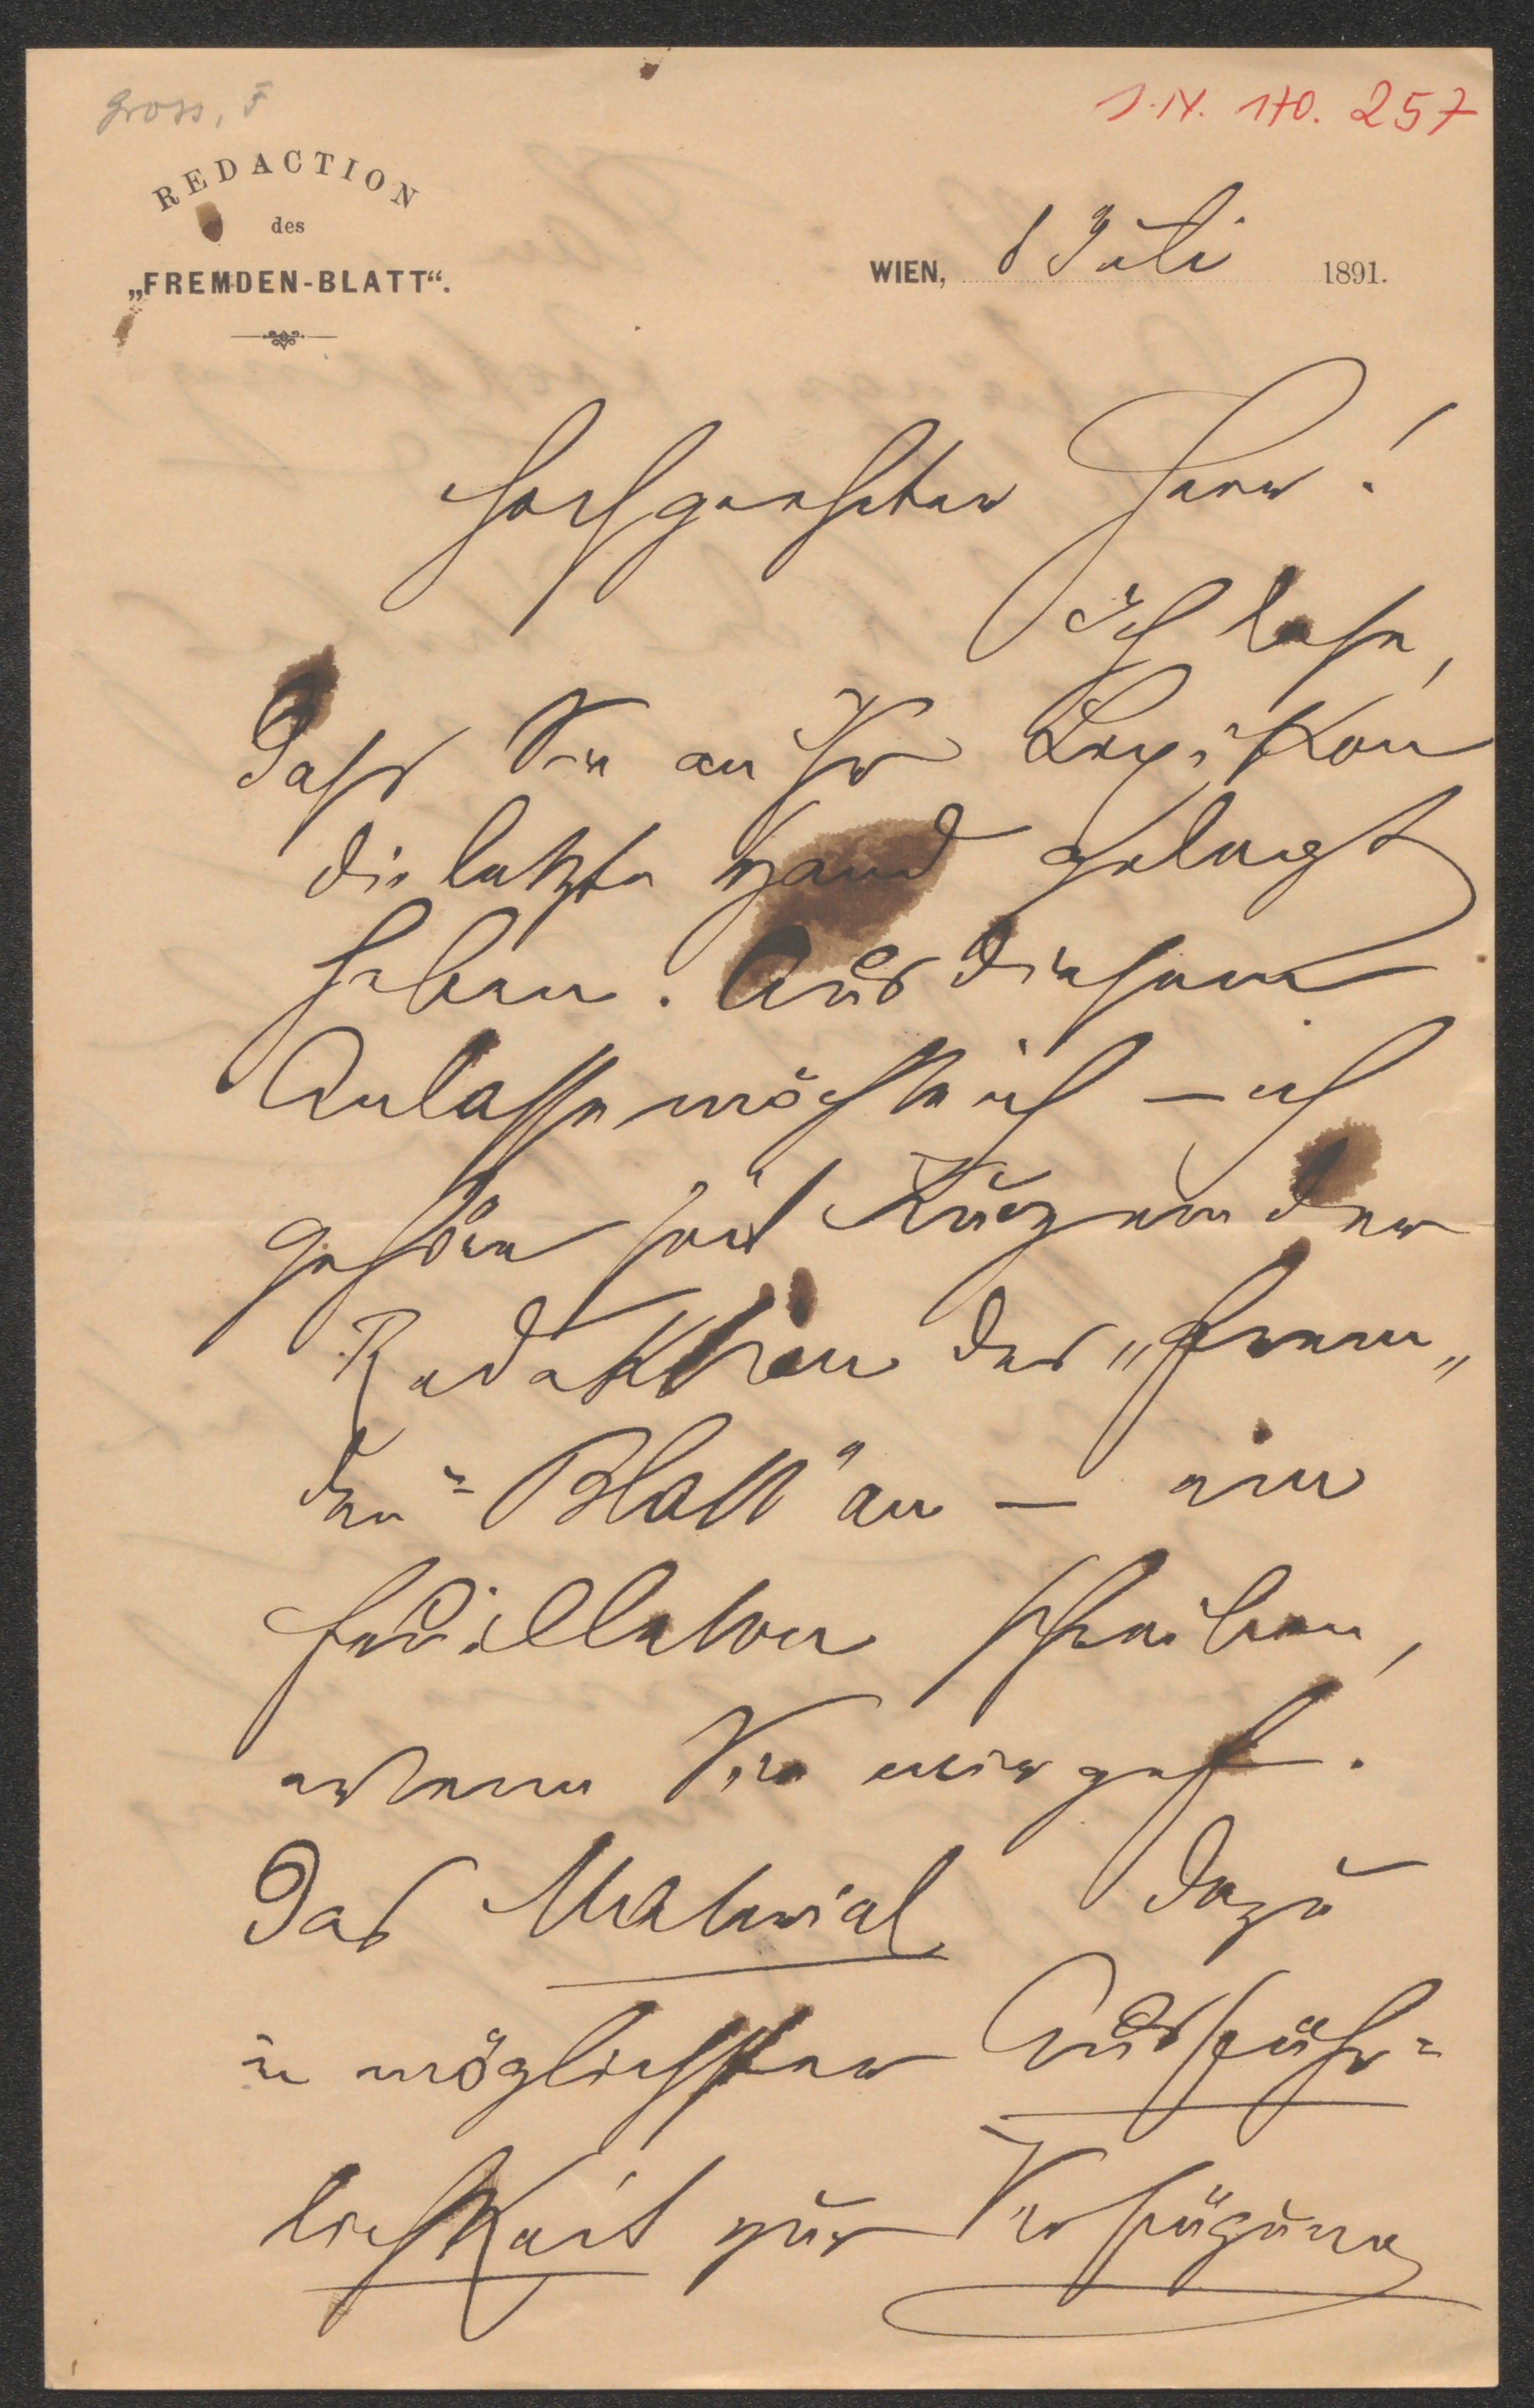 Gross, F
I.N. 170.257
REDACTION
des
„FREMDEN-BLATT“.
WIEN, 6 Juli 1891.
Hochgeehrter Herr!
Ich lese,
daß Sie an Ihr Lexikon
die letzte Hand gelegt
haben. Aus diesem
Anlasse möchte ich – ich
gehöre seit Kurzem der
Redaktion des „Frem„
den=Blatt" an – ein
Feuilleton schreiben,
wenn Sie mir gef.
das Material dazu
in möglichster Ausführ=
lichkeit zur Verfügung